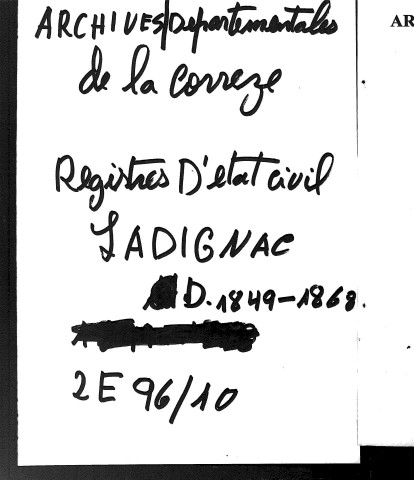 ARCHIVES Départementales
de la Corrèze
Registres D'état civil
LADIGNAC
D. 1849-1868.
2 E 96/10
AR